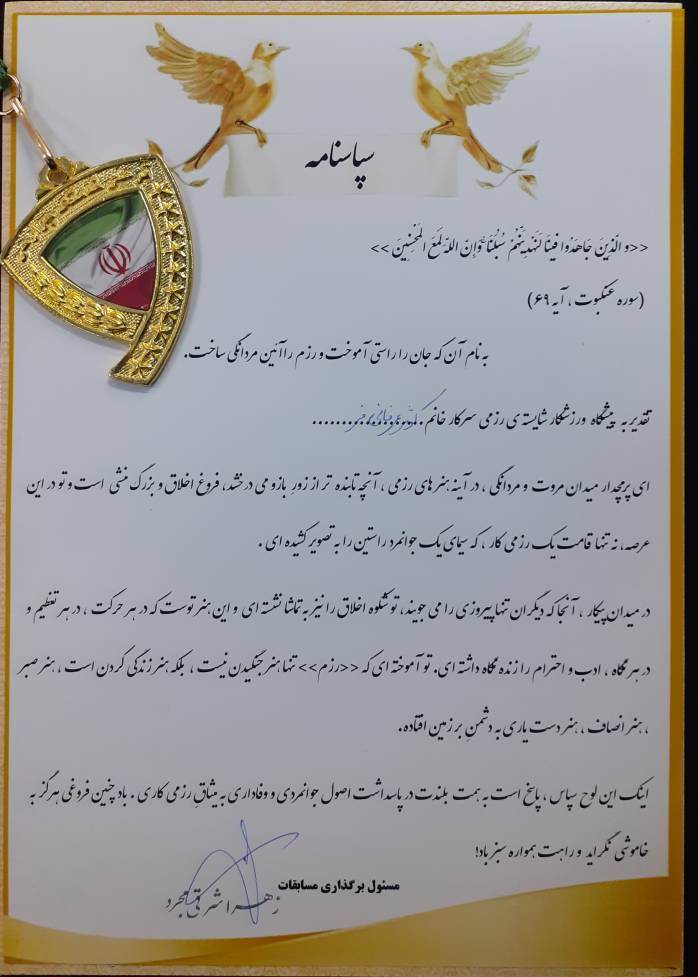 سپاسنامه
<<و الَّذینَ جَاهَدُوا فینَا لَنَهْدِیَنَّهُمْ سُبُلَنَا وَإِنَّ اللَّهَ لَمَعَ الْمُحْسِنِینَ>>
(سوره عنکبوت ، آیه ۶۹)
به نام آن که جان را راستی آموخت و رزم را آئین مردانگی ساخت.
تقدیر به پیشگاه ورزشکار شایسته ی رزمی سرکار خانم
ای پرچمدار میدان مروت و مردانگی ، در آینه هنرهای رزمی ، آنچه تابنده تر از زورِ بازو می درخشد، فروغ اخلاق و بزرگ منشی است و تو در این
عرصه، نه تنها قامت یک رزمی کار ، که سیمای یک جوانمرد راستین را به تصویر کشیده ای .
در میدان پیکار ، آنجا که دیگران تنها پیروزی را می جویند، تو شکوه اخلاق را نیز به تماشا نشسته ای و این هنر توست که در هر حرکت ، در هر تعظیم و
در هر نگاه ، ادب و احترام را زنده نگاه داشته ای. تو آموخته ای که <<رزم>> تنها هنر جنگیدن نیست ، بلکه هنر زندگی کردن است ، هنر صبر
، هنر انصاف ، هنر دست یاری به دشمنِ بر زمین افتاده.
اینک این لوح سپاس ، پاسخ است به همت بلندت در پاسداشت اصول جوانمردی و وفاداری به میثاقِ رزمی کاری . باد چنین فروغی هرگز به
خاموشی نگراید و راهت همواره سبز باد!
مسئول برگذاری مسابقات
زهرا شرکتی مجرد